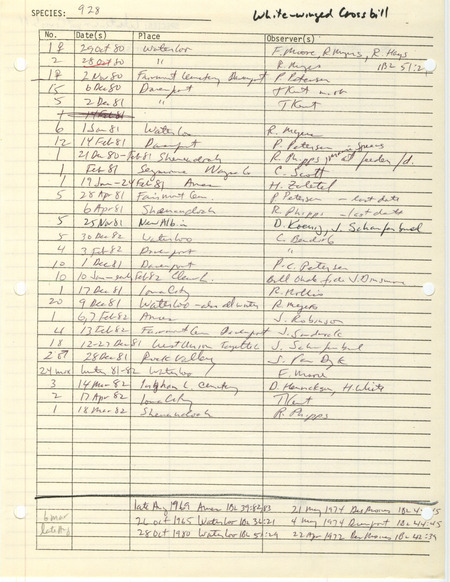 SPECIES: 928 White-winged Crossbill
No. Date(s) Place Observer(s)
1♀ 29 Oct 80 Waterloo F. Moore, R Myers, R. Hays
2 28 Oct 80 " R Myers IBL 51:2
18 2 Nov 80 Fairmount Cemetery Davenport P. Petersen
15 6 Dec 80 Davenport
5 2 Dec 81 " T Kent
1 14 Feb 81
6 1 Jan 81 Waterloo R. Myers
12 14 Feb 81 Davenport P. Petersen
1 21 Dec 80-Feb 81 Shenandoah R. Phipps at feeder
1 Feb 81 Seymour Wayne Co C. Scott
1 19 Jan-24 Feb 81 Ames H. Zaletel
5 28 Apr 81 Fairmount Cem. P Petersen - last date
6 Apr 81 Shenandoah R. Phipps - last date
5 25 Nov 81 New Albin D. Koenig, J. Schaufenbuel
5 30 Dec 82 Waterloo C. Bendorf
4 3 Feb 82 Davenport "
10 1 Dec 81 Davenport P.C. Petersen
10 10 Jan-early Feb 82 J. Dinsmore
1 17 Dec 81 Iowa City R. Hollis
20 9 Dec 81 Waterloo - also all winter R. Myers
1 6,7 Feb 82 Ames J. Robinson
4 13 Feb 82 Fairmount Cem Davenport J. Sandrock
18 12-27 Dec 81 West Union Fayette J. Schaufenbuel
2 28 Dec 81 Rock Valley J. Van Dyk
24 max winter 81-82 Waterloo F. Moore
3 14 Mar 82 Cemetery D. Henneken, H. White
2 17 Apr 82 Iowa City T Kent
1 18 Mar 82 Shenandoah R. Phipps
late Aug 1969 Ames IBL 39:82,83 21 May 1974 Des Moines IBL 44:45
6 mar 26 Oct 1965 Waterloo IBL 36:21 4 May 1974 Davenport IBL 44:45
late Aug 28 Oct 1980 Waterloo IBL 51:29 22 Apr 1972 Des Moines IBL 42:39